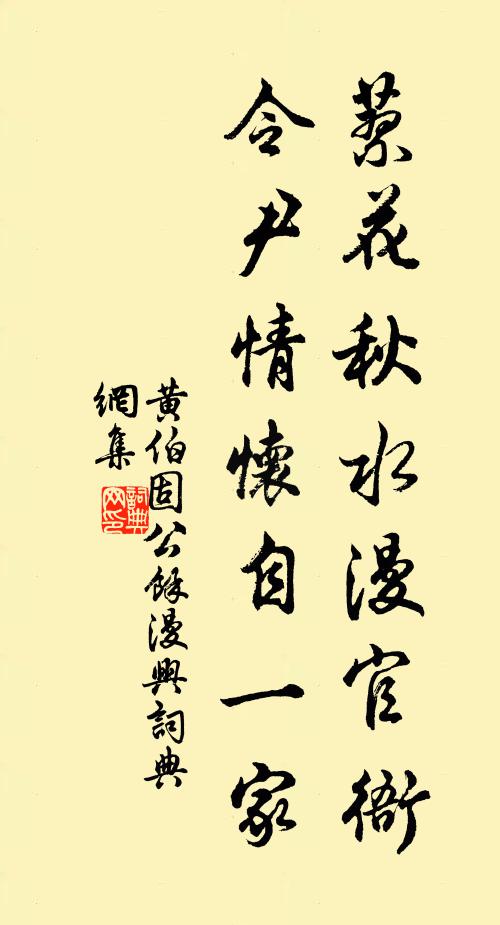 蔡花秋水漫官衙
令尹情懷自一家
黃伯固公餘漫興詞典
網集
詞典
网印